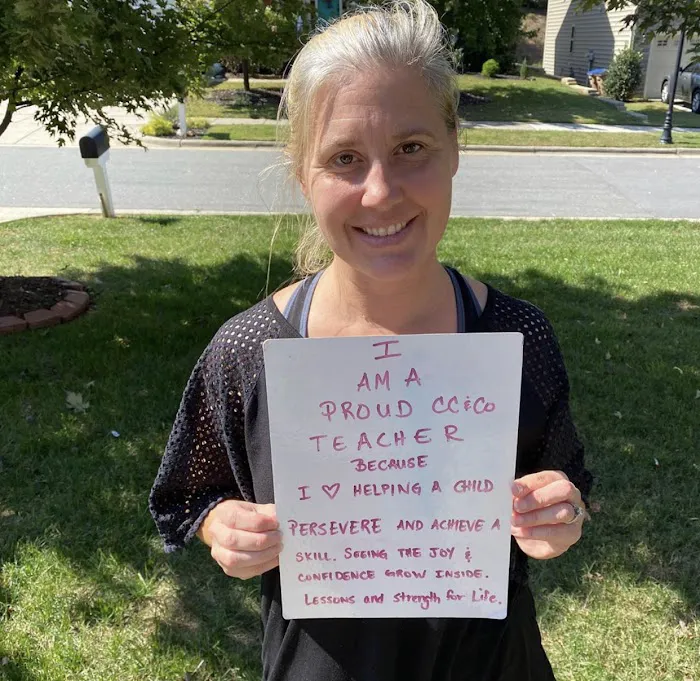 I
AM A
PROUD CC&Co
TEACHER
BECAUSE
I ♡ HELPING A CHILD
PERSEVERE AND ACHIEVE A
SKILL. SEEING THE JOY &
CONFIDENCE GROW INSIDE.
LESSONS and strength for Life.